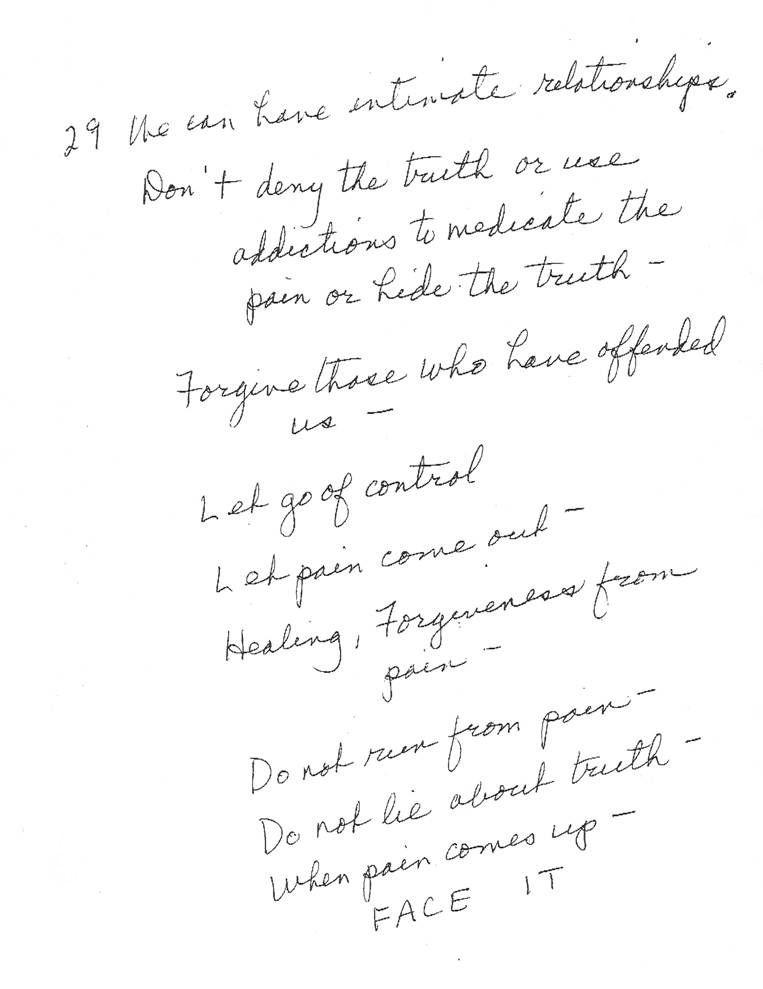 29 We can have intimate relationships.
Don't deny the truth or use
addictions to medicate the
pain or hide the truth –
Forgive those who have offended
us –
Let go of control
Let pain come out –
Healing, Forgiveness from
pain –
Do not run from pain –
Do not lie about truth –
When pain comes up –
FACE IT